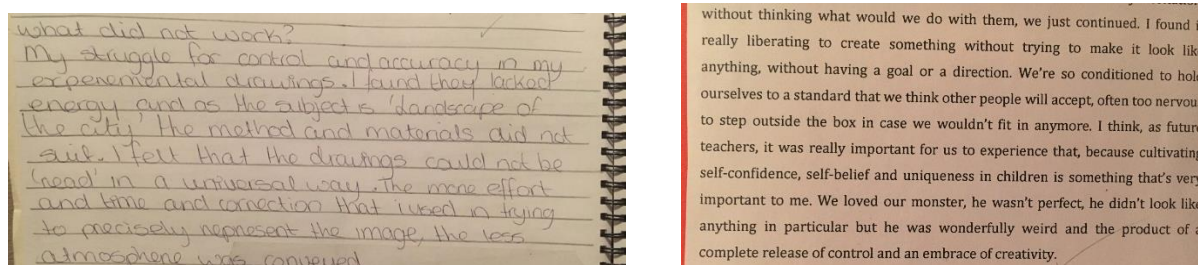 what did not work?
My struggle for control and accuracy in my
experemental drawings. I found they lacked
energy and as the subject is 'Landscape of
the city' the method and materials did not
suit. I felt that the drawings could not be
'read' in a universal way. The more effort
and time and correction that I used in trying
to precisely represent the image, the less
atmosphere was conveyed
without thinking what would we do with them, we just continued. I found
really liberating to create something without trying to make it look
anything, without having a goal or a direction. We're so conditioned to
ourselves to a standard that we think other people will accept, often too
to step outside the box in case we wouldn't fit in anymore. I think, as
teachers, it was really important for us to experience that, because cultivating
self-confidence, self-belief and uniqueness in children is something that's
important to me. We loved our monster, he wasn't perfect, he didn't look
anything in particular but he was wonderfully weird and the product of
complete release of control and an embrace of creativity.